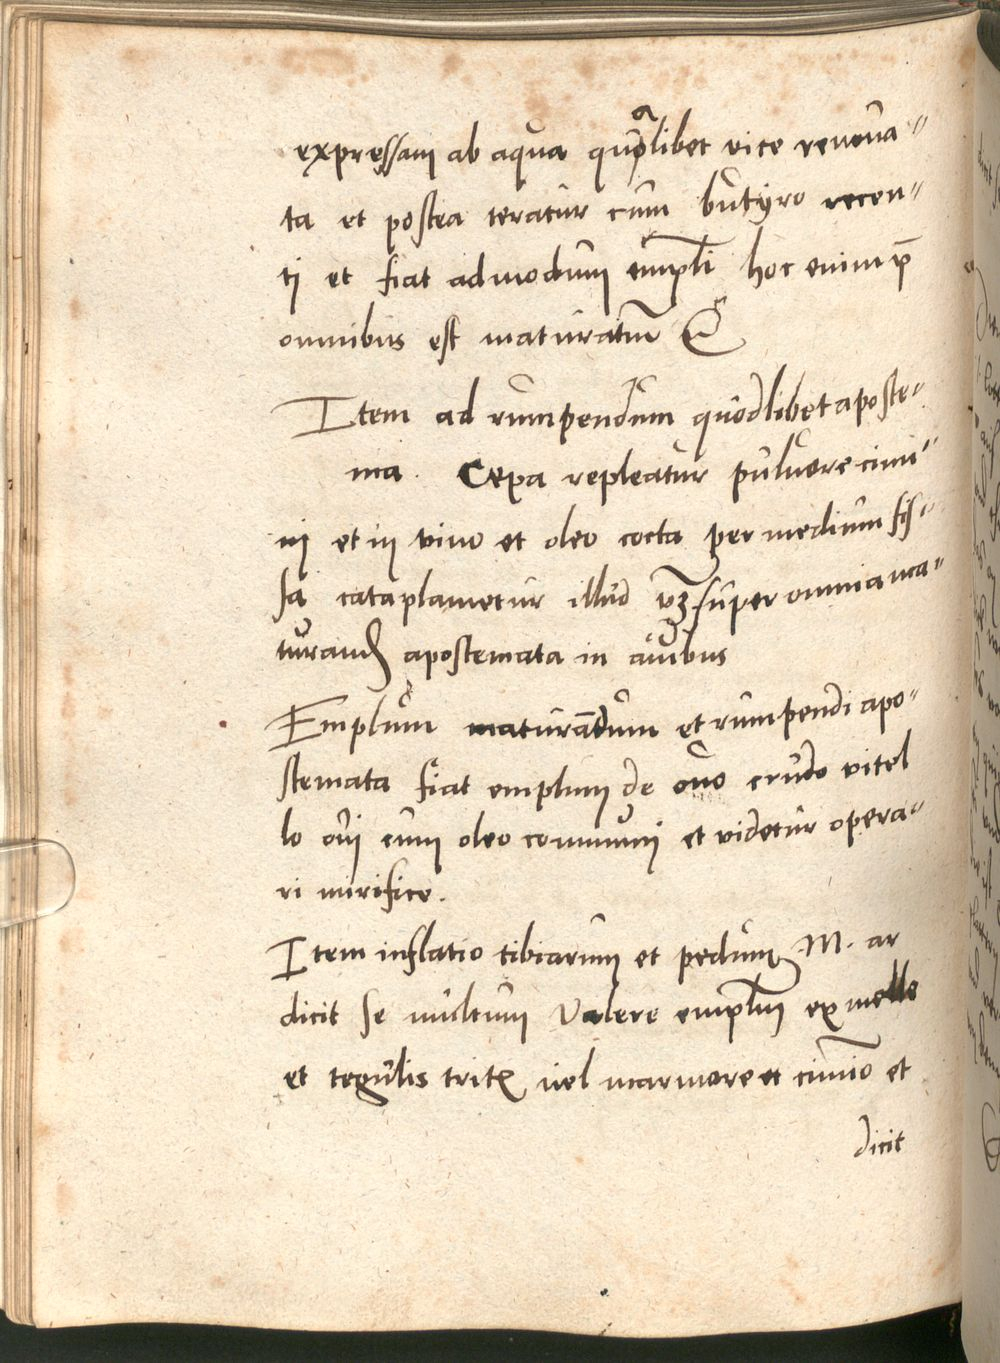 expressam ab aqua qualibet vice renova-
ta et postea teratur cum butyro recen-
ti et fiat ad modum empli hoc enim p̄
omnibus est maturatiuū
Item ad rumpendum quodlibet aposte-
ma. Cepa repleatur puluere cimi-
nj et in vino et oleo cocta per medium fis-
sa cataplametur illud vz super omnia ma-
turand apostemata in auibus
Emplum maturandum et rumpendi apo-
stemata fiat emplum de ouo crudo vitel
lo oui cum oleo communj et videtur opera-
ri mirifice.
Item inflatio tibiarum et pedum M. ar
dicit se multum Valere emplm ex melle
et tegulis trit uel marmore et cimino et
dicit